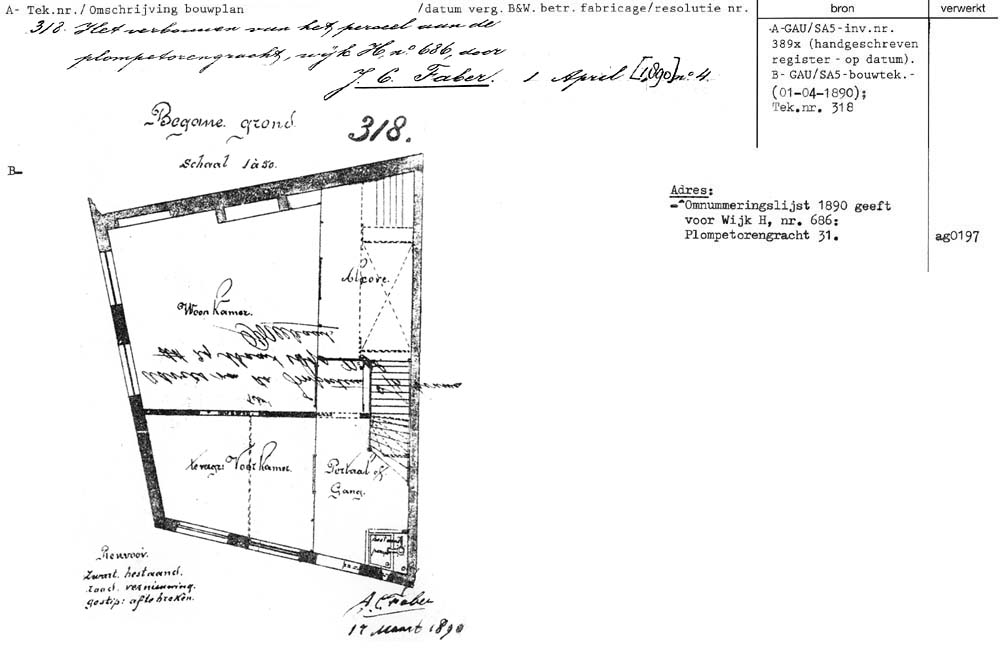 A- Tek.nr./ Omschrijving bouwplan /datum verg. B&W. betr. fabricage/resolutie nr. bron verwerkt
318. Het verbouwen van het perceel aan de
plompetorengracht, wijk H, no 686, door
J. C. Faber. 1 April [1890] no 4.
A-GAU/SA5-inv.nr.
389x (handgeschreven
register - op datum).
B- GAU/SA5-bouwtek.-
(01-04-1890);
Tek.nr. 318
Begane grond
318.
Schaal 1 à 50.
B-
Adres:
-Omnummeringslijst 1890 geeft
voor Wijk H, nr. 686:
Plompetorengracht 31.
ag0197
Alcove.
Woon Kamer.
Voor Kamer.
Portaal of
Gang.
Renvooi.
Zwart. bestaand.
rood. vernieuwing.
gestip: af te breken.
A. C. Faber
17 Maart 1890